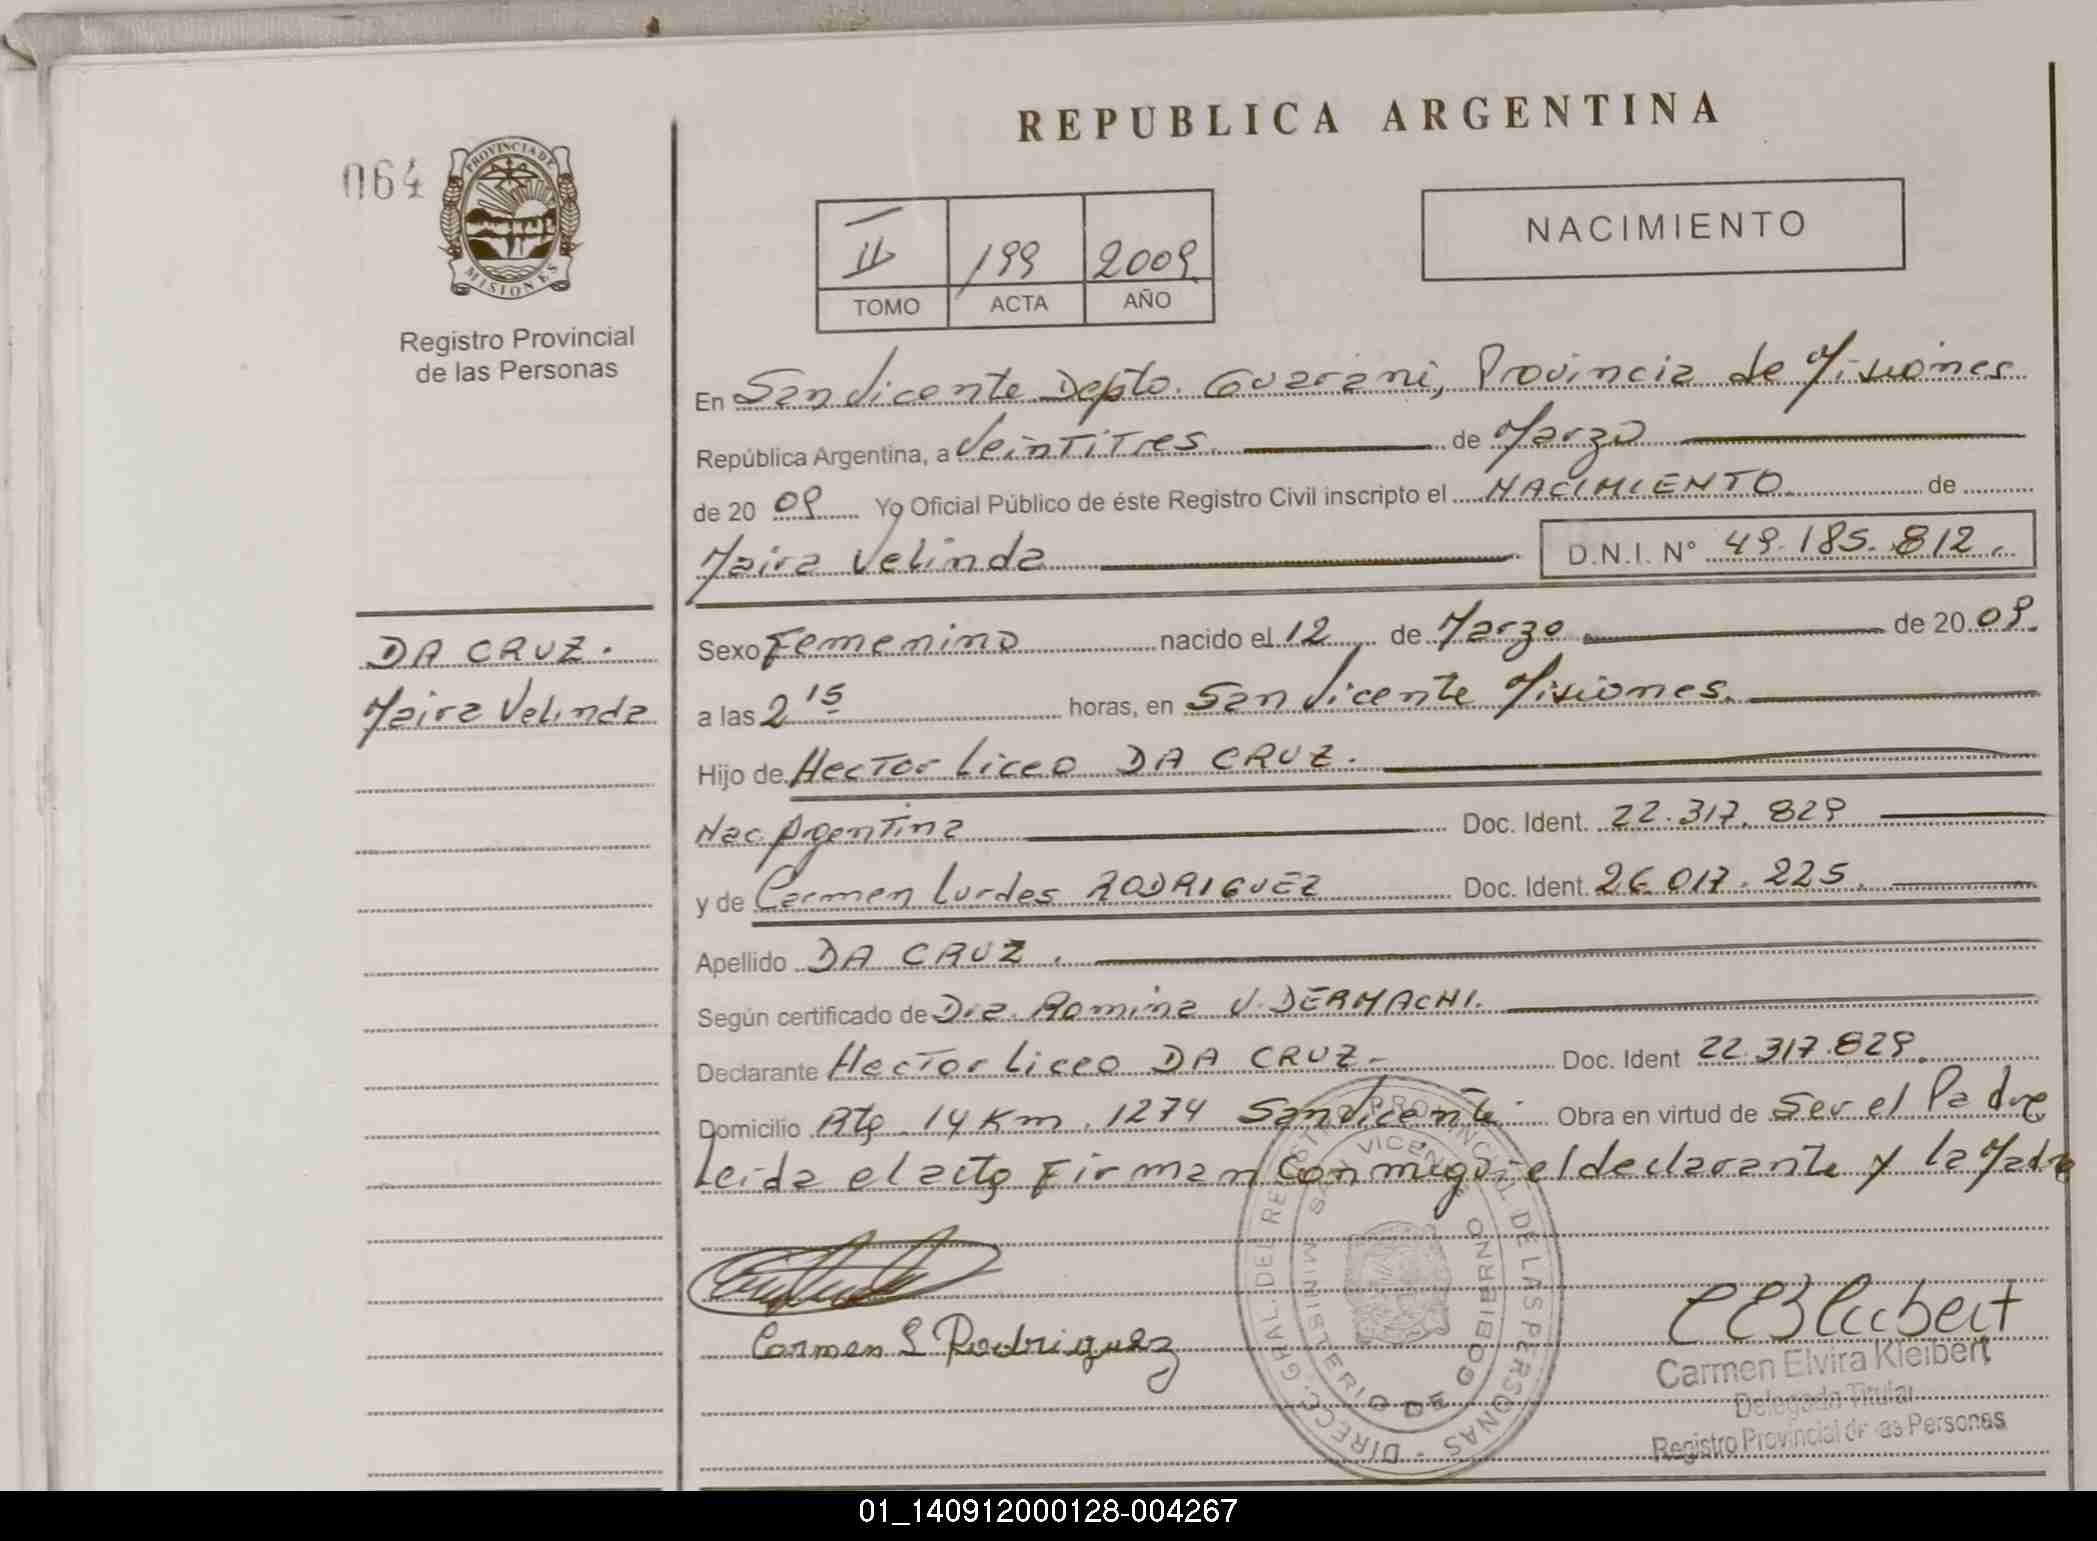 REPUBLICA ARGENTINA
064
PROVINCIA DE
MISIONES
Registro Provincial
de las Personas
II 199 2009
TOMO ACTA AÑO
NACIMIENTO
En San Vicente Depto. Guarani, Provincia de Misiones
República Argentina, a Veintitres de Marzo
de 2009 Yo Oficial Público de éste Registro Civil inscripto el NACIMIENTO de
Maira Velinda D.N.I. N° 49.185.812.
DA CRUZ.
Maira Velinda
Sexo Femenino nacido el 12 de Marzo de 2009.
a las 2 15 horas, en San Vicente Misiones.
Hijo de Hector Liceo DA CRUZ.
Nac. Argentina Doc. Ident. 22.317.829
y de Carmen Lurdes RODRIGUEZ Doc. Ident. 26.017.225.
Apellido DA CRUZ.
Según certificado de Dra. Romina V. DERMACHI.
Declarante Hector Liceo DA CRUZ.- Doc. Ident 22.317.829.
Domicilio Rta. 14 Km. 1274 San Vicente Obra en virtud de Ser el Padre
Leida el acta Firman Conmigo el declarante y la Madre
Carmen L Rodriguez
DIRECC. GRAL. DEL REGISTRO PROVINCIAL DE LAS PERSONAS
SAN VICENTE
MINISTERIO DE GOBIERNO
CEKleibert
Carmen Elvira Kleibert
Delegado Titular
Registro Provincial de las Personas
01_140912000128-004267